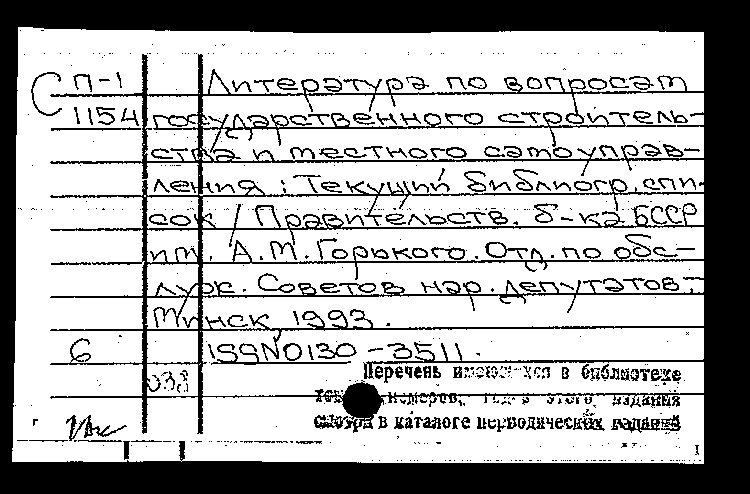 С П-1 Литература по вопросам
1154 государственного строитель-
ства и местного самоуправ-
ления : Текущий библиогр. спи-
сок / Правительств. б-ка БССР
им. А.М.Горького. Отд. по обс-
луж. Советов нар. депутатов. -
Минск, 1993.
6 ISSN0130-3511.
Перечень имеющихся в библиотеке
038
томов, номеров, год-в этого издания
смотри в каталоге периодических изданий
1